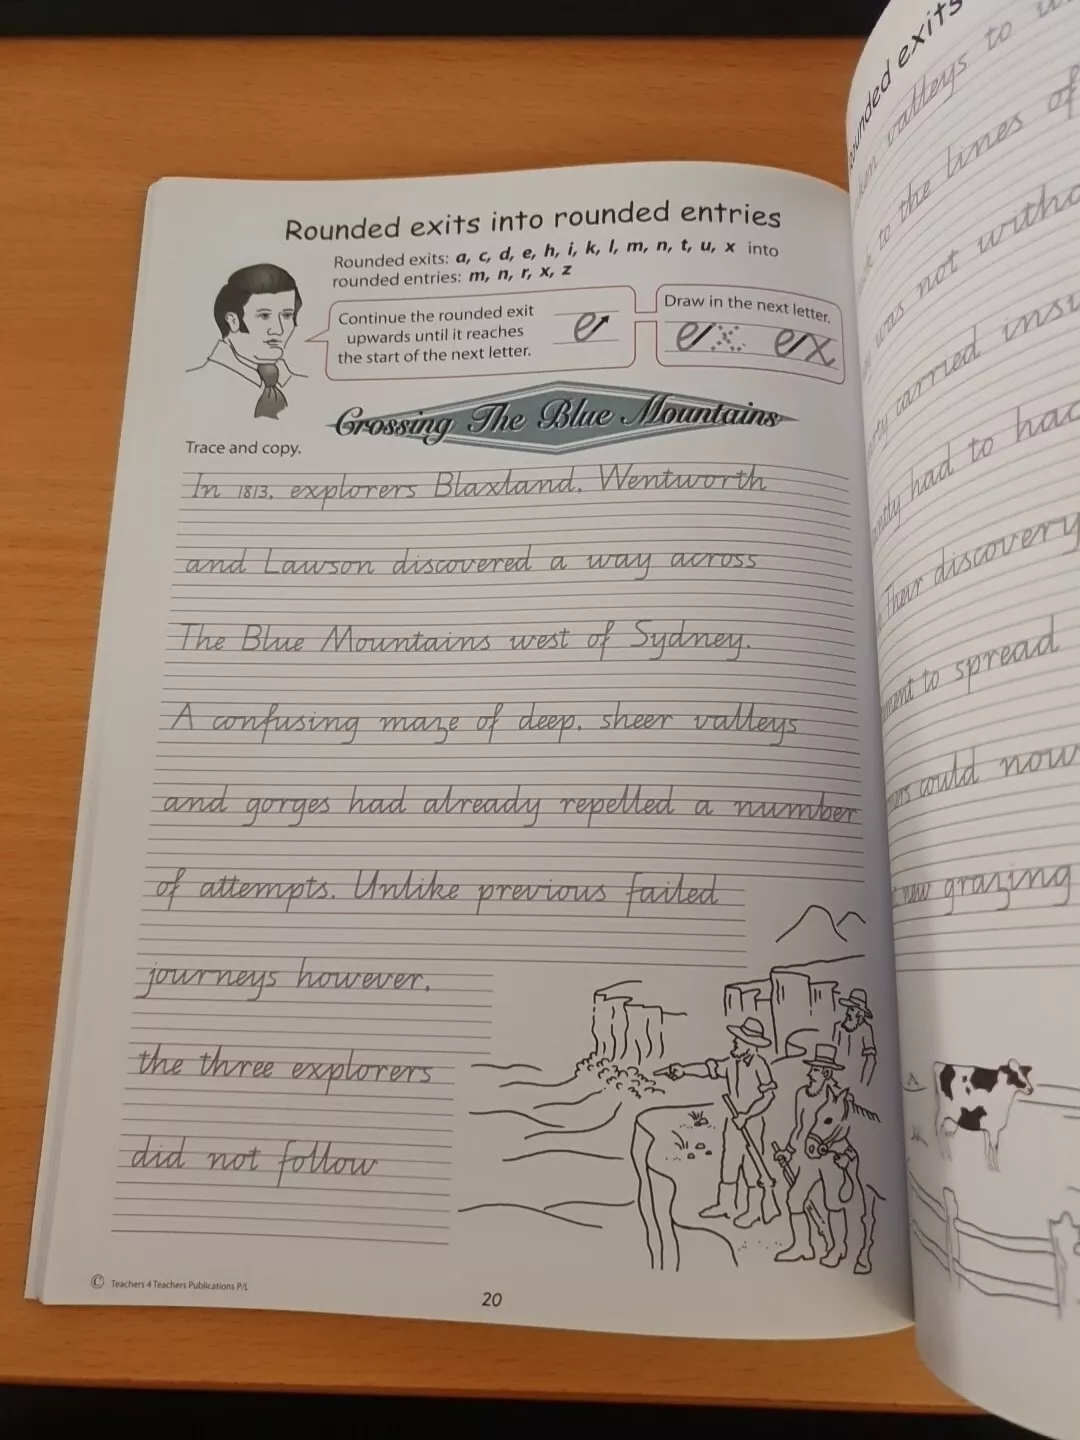 Rounded exits into rounded entries
Rounded exits: a, c, d, e, h, i, k, l, m, n, t, u, x into
rounded entries: m, n, r, x, z
Continue the rounded exit
upwards until it reaches
the start of the next letter.
e
Draw in the next letter.
ex ex
Crossing The Blue Mountains
Trace and copy.
In 1813, explorers Blaxland, Wentworth
and Lawson discovered a way across
The Blue Mountains west of Sydney.
A confusing maze of deep, sheer valleys
and gorges had already repelled a number
of attempts. Unlike previous failed
journeys however,
the three explorers
did not follow
© Teachers 4 Teachers Publications P/L
20
exits
valleys to
to the lines of
was not
carried
had to
Their discovery
to spread
could now
new grazing